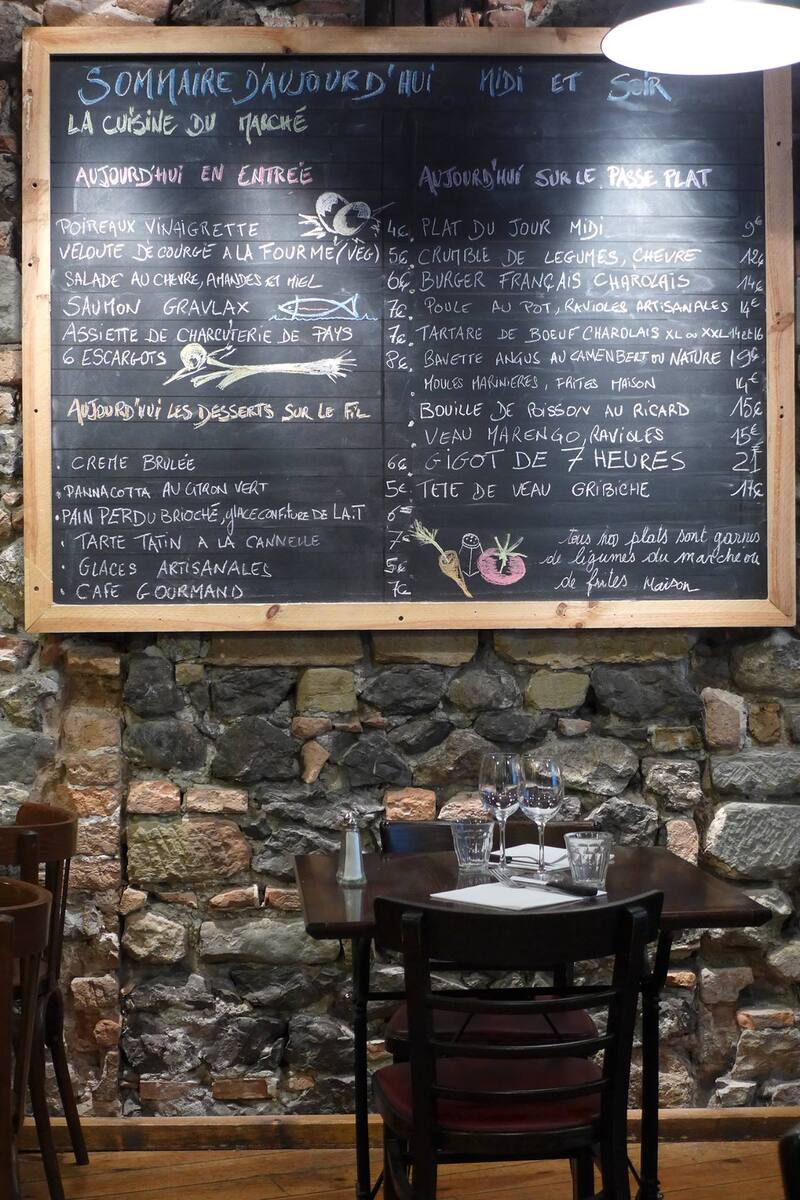 SOMMAIRE D'AUJOURD'HUI MIDI ET SOIR
LA CUISINE DU MARCHÉ
AUJOURD'HUI EN ENTRÉE
POIREAUX VINAIGRETTE 4€
VELOUTE DE COURGE A LA FOURME (VEG) 5€
SALADE AU CHEVRE, AMANDES ET MIEL 6€
SAUMON GRAVLAX 7€
ASSIETTE DE CHARCUTERIE DE PAYS 7€
6 ESCARGOTS 8€
AUJOURD'HUI LES DESSERTS SUR LE FIL
• CREME BRULÉE 6€
• PANNACOTTA AU CITRON VERT 5€
• PAIN PERDU BRIOCHÉ, GLACE CONFITURE DE LAIT 6€
• TARTE TATIN A LA CANNELLE 7€
• GLACES ARTISANALES 5€
• CAFE GOURMAND 7€
AUJOURD'HUI SUR LE PASSE PLAT
PLAT DU JOUR MIDI 9€
CRUMBLE DE LEGUMES, CHEVRE 12€
BURGER FRANÇAIS CHAROLAIS 14€
POULE AU POT, RAVIOLES ARTISANALES 14€
TARTARE DE BOEUF CHAROLAIS XL OU XXL 14 et 16
BAVETTE ANGUS AU CAMENBERT OU NATURE 19€
MOULES MARINIERES, FRITES MAISON 14€
BOUILLE DE POISSON AU RICARD 15€
VEAU MARENGO, RAVIOLES 15€
GIGOT DE 7 HEURES 21
TETE DE VEAU GRIBICHE 17€
tous nos plats sont garnis
de légumes du marché ou
de frites MAISON